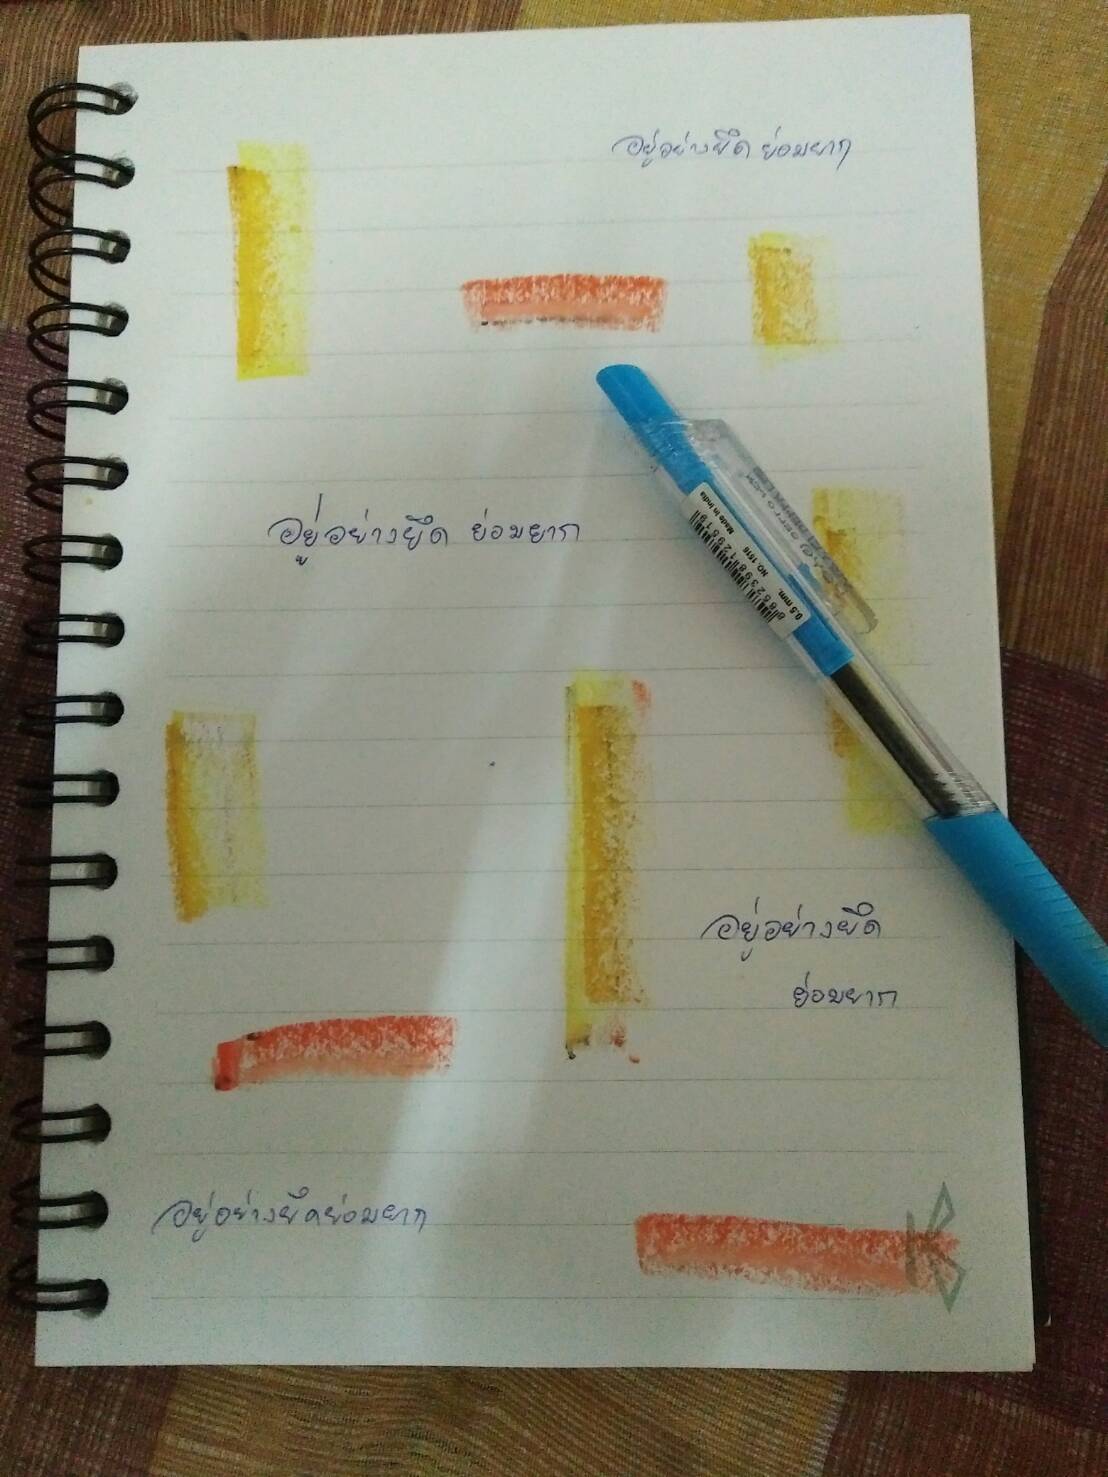 อยู่อย่างยึด ย่อมยาก
อยู่อย่างยึด ย่อมยาก
Made in India
NO. 1516
0.5 mm.
อยู่อย่างยึด
ย่อมยาก
อยู่อย่างยึดย่อมยาก